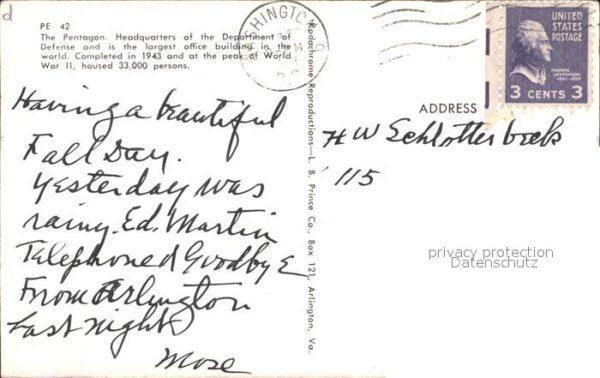 d
PE 42
The Pentagon. Headquarters of the Department of
Defense and is the largest office building in the
world. Completed in 1943 and at the peak of World
War II, housed 33,000 persons.
Having a beautiful
Fall Day.
Yesterday was
rainy. Ed. Martin
Telephoned Goodbye
From Arlington
Last night
Mose
Kodachrome Reproductions—L. B. Prince Co., Box 121, Arlington, Va.
WASHINGTON
UNITED STATES
POSTAGE
THOMAS JEFFERSON
1801-1809
3 CENTS 3
ADDRESS
H W Schlotterbeck
115
privacy protection
Datenschutz